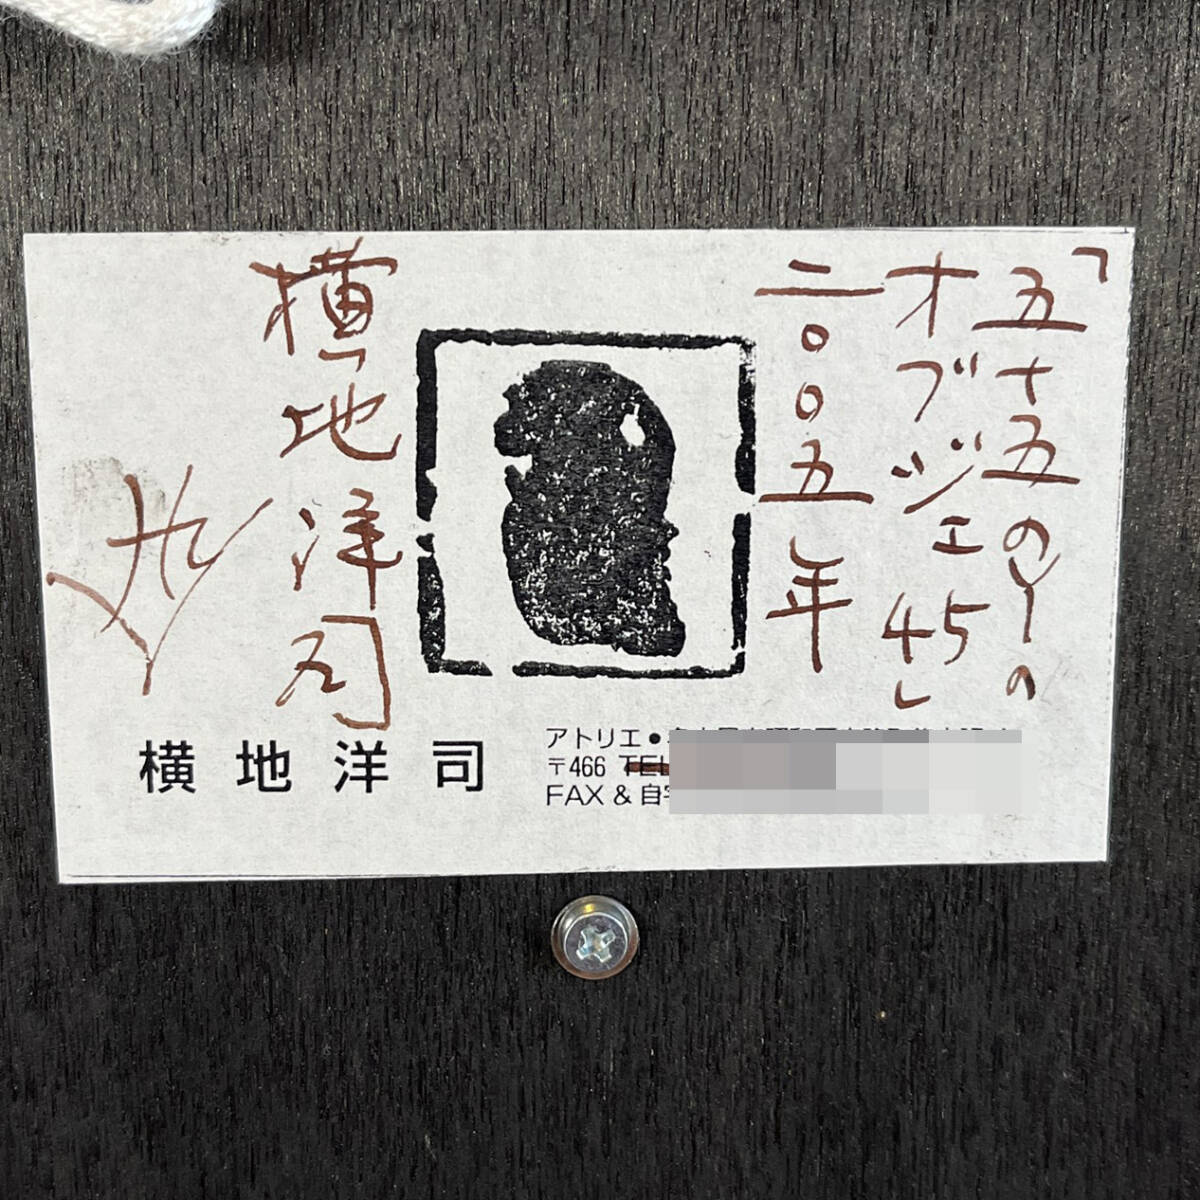 「五十五の1の
オブジェ45」
二〇〇五年
横地洋司
横地洋司
アトリエ●
〒466 TEL
FAX & 自宅